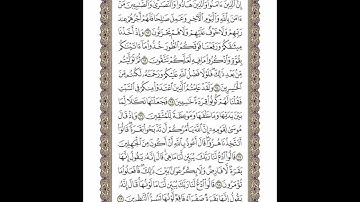 إِنَّ ٱلَّذِينَ ءَامَنُوا۟ وَٱلَّذِينَ هَادُوا۟ وَٱلنَّصَٰرَىٰ وَٱلصَّٰبِـِٔينَ مَنْ
ءَامَنَ بِٱللَّهِ وَٱلْيَوْمِ ٱلْـَٔاخِرِ وَعَمِلَ صَٰلِحًا فَلَهُمْ أَجْرُهُمْ عِندَ
رَبِّهِمْ وَلَا خَوْفٌ عَلَيْهِمْ وَلَا هُمْ يَحْزَنُونَ ٦٢ وَإِذْ أَخَذْنَا
مِيثَٰقَكُمْ وَرَفَعْنَا فَوْقَكُمُ ٱلطُّورَ خُذُوا۟ مَآ ءَاتَيْنَٰكُم
بِقُوَّةٍ وَٱذْكُرُوا۟ مَا فِيهِ لَعَلَّكُمْ تَتَّقُونَ ٦٣ ثُمَّ تَوَلَّيْتُم
مِّنۢ بَعْدِ ذَٰلِكَ فَلَوْلَا فَضْلُ ٱللَّهِ عَلَيْكُمْ وَرَحْمَتُهُۥ لَكُنتُم مِّنَ
ٱلْخَٰسِرِينَ ٦٤ وَلَقَدْ عَلِمْتُمُ ٱلَّذِينَ ٱعْتَدَوْا۟ مِنكُمْ فِى ٱلسَّبْتِ
فَقُلْنَا لَهُمْ كُونُوا۟ قِرَدَةً خَٰسِـِٔينَ ٦٥ فَجَعَلْنَٰهَا نَكَٰلًا لِّمَا
بَيْنَ يَدَيْهَا وَمَا خَلْفَهَا وَمَوْعِظَةً لِّلْمُتَّقِينَ ٦٦ وَإِذْ قَالَ
مُوسَىٰ لِقَوْمِهِۦٓ إِنَّ ٱللَّهَ يَأْمُرُكُمْ أَن تَذْبَحُوا۟ بَقَرَةً قَالُوٓا۟
أَتَتَّخِذُنَا هُزُوًا قَالَ أَعُوذُ بِٱللَّهِ أَنْ أَكُونَ مِنَ ٱلْجَٰهِلِينَ
٦٧ قَالُوا۟ ٱدْعُ لَنَا رَبَّكَ يُبَيِّن لَّنَا مَا هِىَ قَالَ إِنَّهُۥ يَقُولُ إِنَّهَا
بَقَرَةٌ لَّا فَارِضٌ وَلَا بِكْرٌ عَوَانٌۢ بَيْنَ ذَٰلِكَ فَٱفْعَلُوا۟ مَا
تُؤْمَرُونَ ٦٨ قَالُوا۟ ٱدْعُ لَنَا رَبَّكَ يُبَيِّن لَّنَا مَا لَوْنُهَا قَالَ إِنَّهُۥ
يَقُولُ إِنَّهَا بَقَرَةٌ صَفْرَآءُ فَاقِعٌ لَّوْنُهَا تَسُرُّ ٱلنَّٰظِرِينَ ٦٩